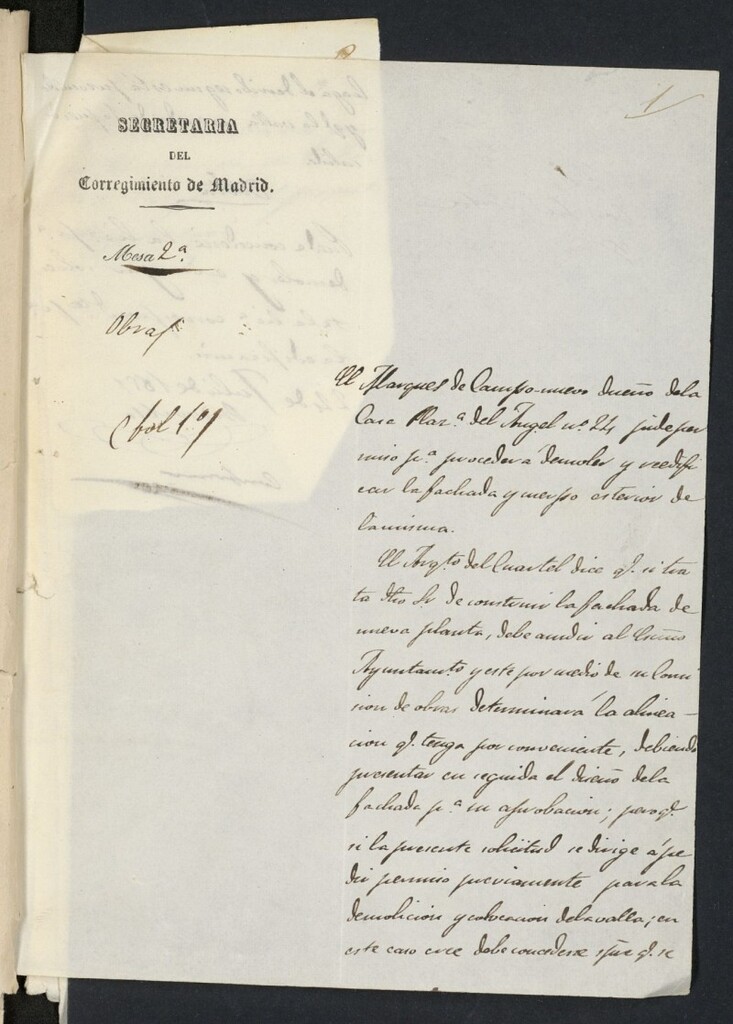 1
SECRETARIA
DEL
Corregimiento de Madrid.
Mesa 2ª
Obras
fol 1º
El Marques de Campo-nuevo dueño dela
Casa Plazª del Angel nº 24 pide per
miso pª proceder a demoler y reedifi
car la fachada y cuerpo esterior de
la misma.
El Arqto del Cuartel dice q. si tra
ta dho Sr de construir la fachada de
nueva planta, debe acudir al Excmo
Ayuntamto y este por medio de su Comi
sion de obras determinará la alinea-
cion q. tenga por conveniente, debiendo
presentar en seguida el diseño dela
fachada pª su aprobacion; pero q.
si la presente solicitud se dirige á pe
dir permiso previamente para la
demolicion y colocacion dela valla; en
este caso cree debe concederse q. se